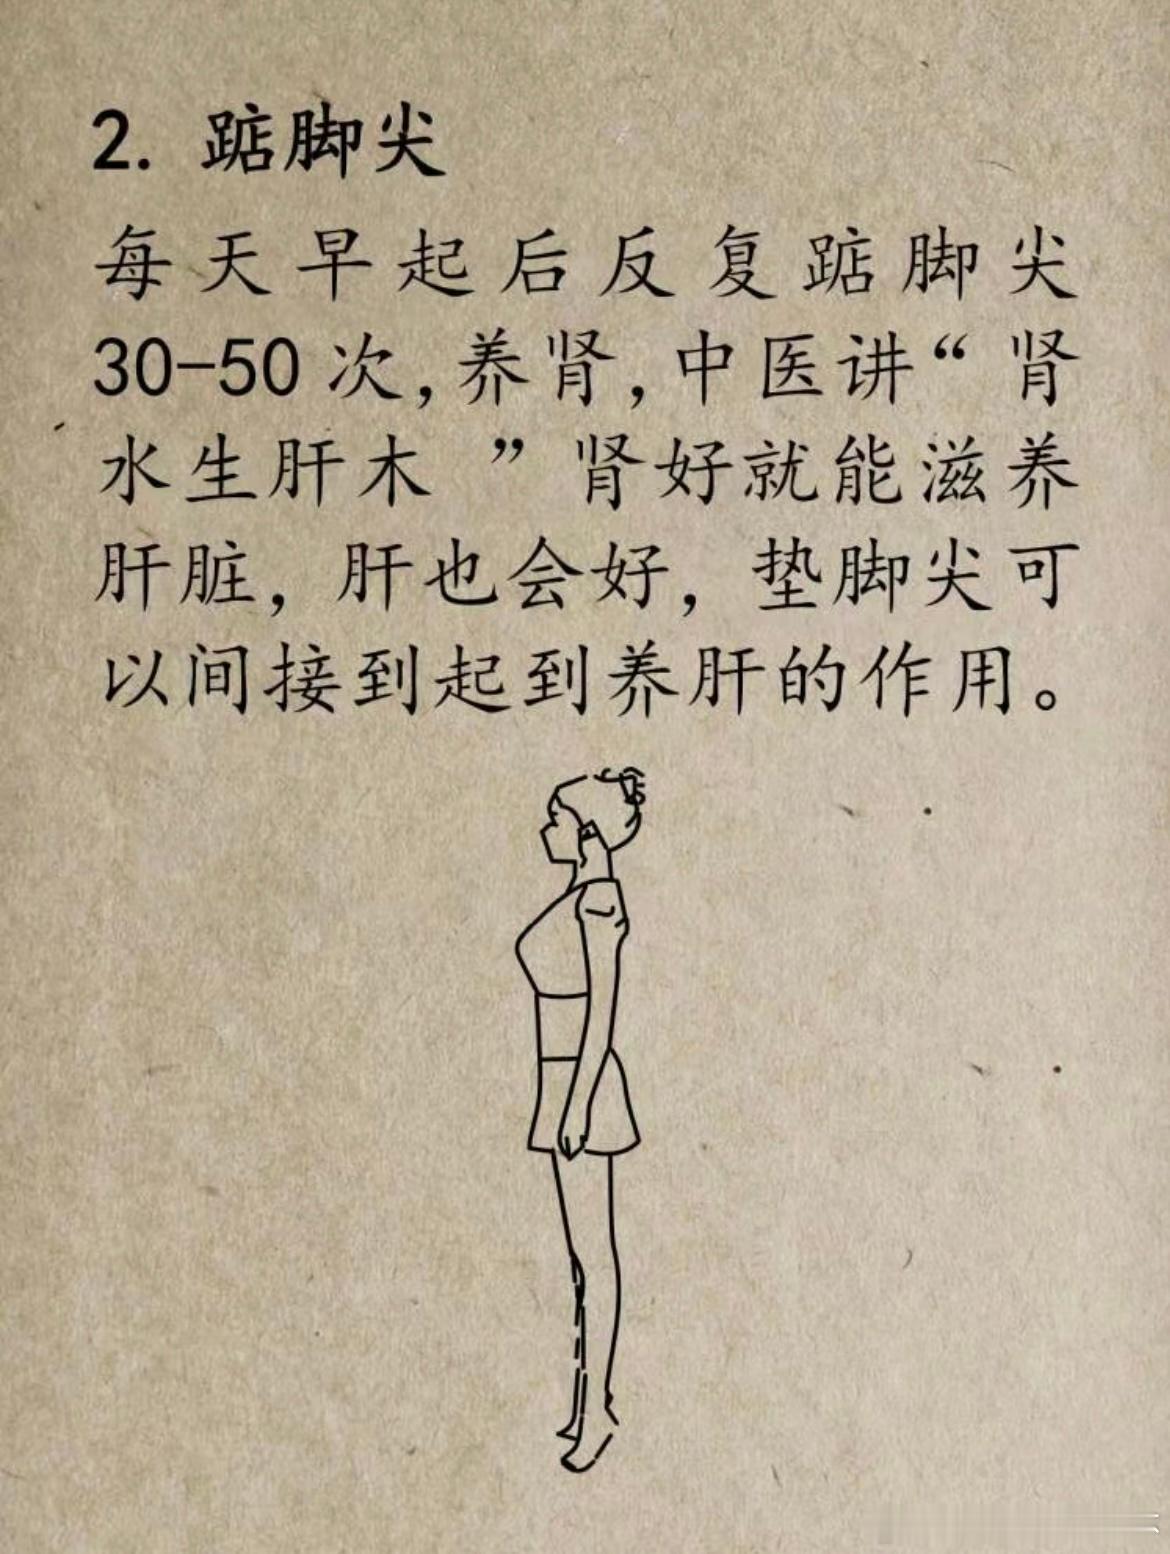 2. 踮脚尖
每天早起后反复踮脚尖
30-50次，养肾，中医讲“肾
水生肝木 ”肾好就能滋养
肝脏，肝也会好，垫脚尖可
以间接到起到养肝的作用。